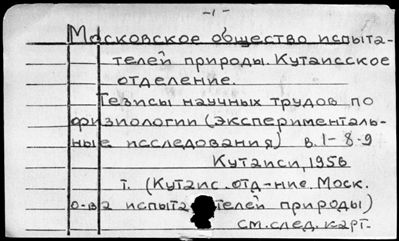 -1-
Московское общество испыта-
телей природы. Кутаисское
отделение.
Тезисы научных трудов по
физиологии (эксперименталь-
ные исследования) в.1-8-9
Кутаиси, 1956
т. (Кутаис. отд-ние Моск.
о-ва испытателей природы)
см. след. карт.